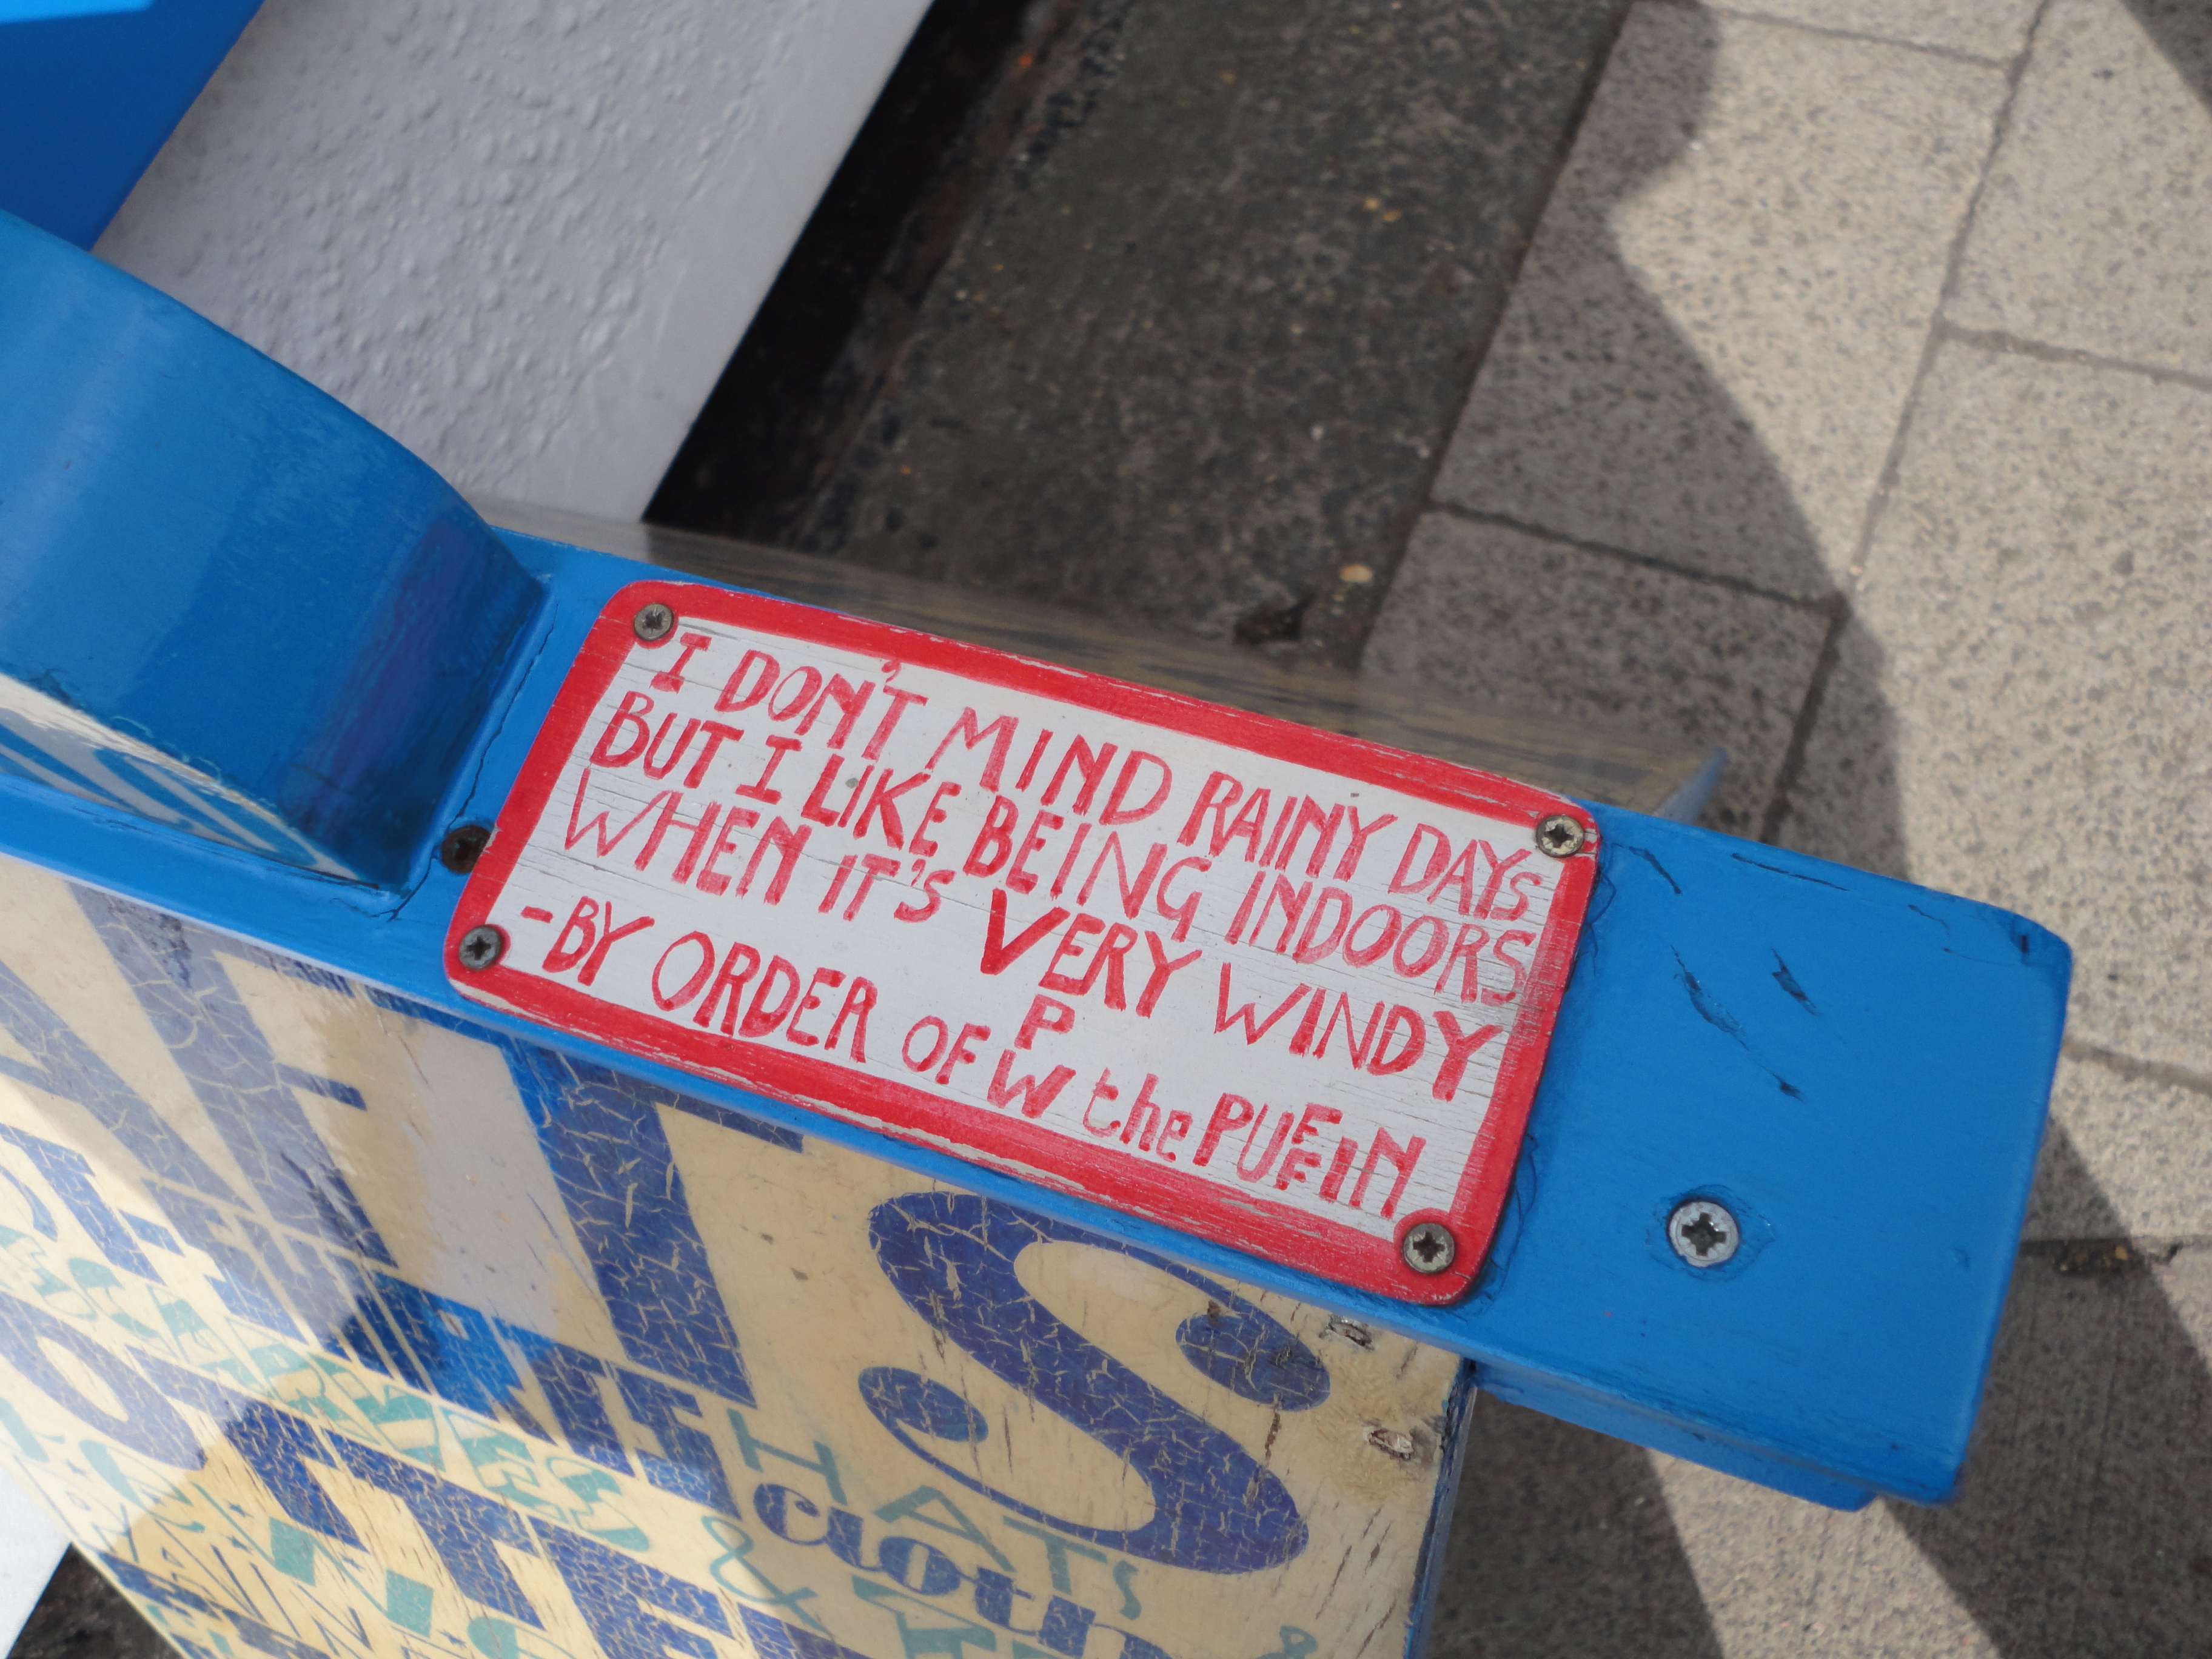 I DON'T MIND RAINY DAYS
BUT I LIKE BEING INDOORS
WHEN IT'S VERY WINDY
-BY ORDER OF P W the PUFFIN
SCARVES
HATS
&
CLOTH